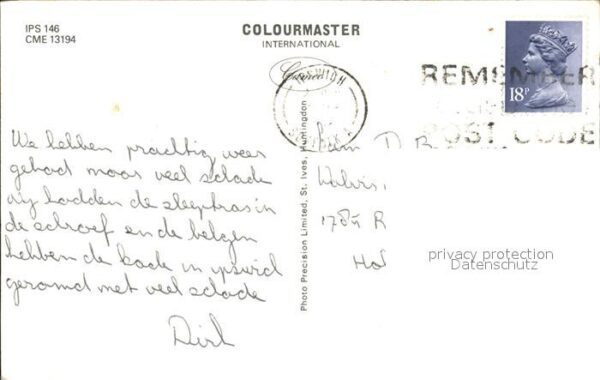 IPS 146
CME 13194
COLOURMASTER
INTERNATIONAL
18P
REMEMBER
POST CODE
Photo Precision Limited, St. Ives, Huntingdon
We hebben prachtig weer
gehad maar veel schade
wij hadden de sleeptros in
de schroef en de belgen
hebben de kade in ipswich
geramd met veel schade
Dirk
Fam D
178
Hol
privacy protection
Datenschutz